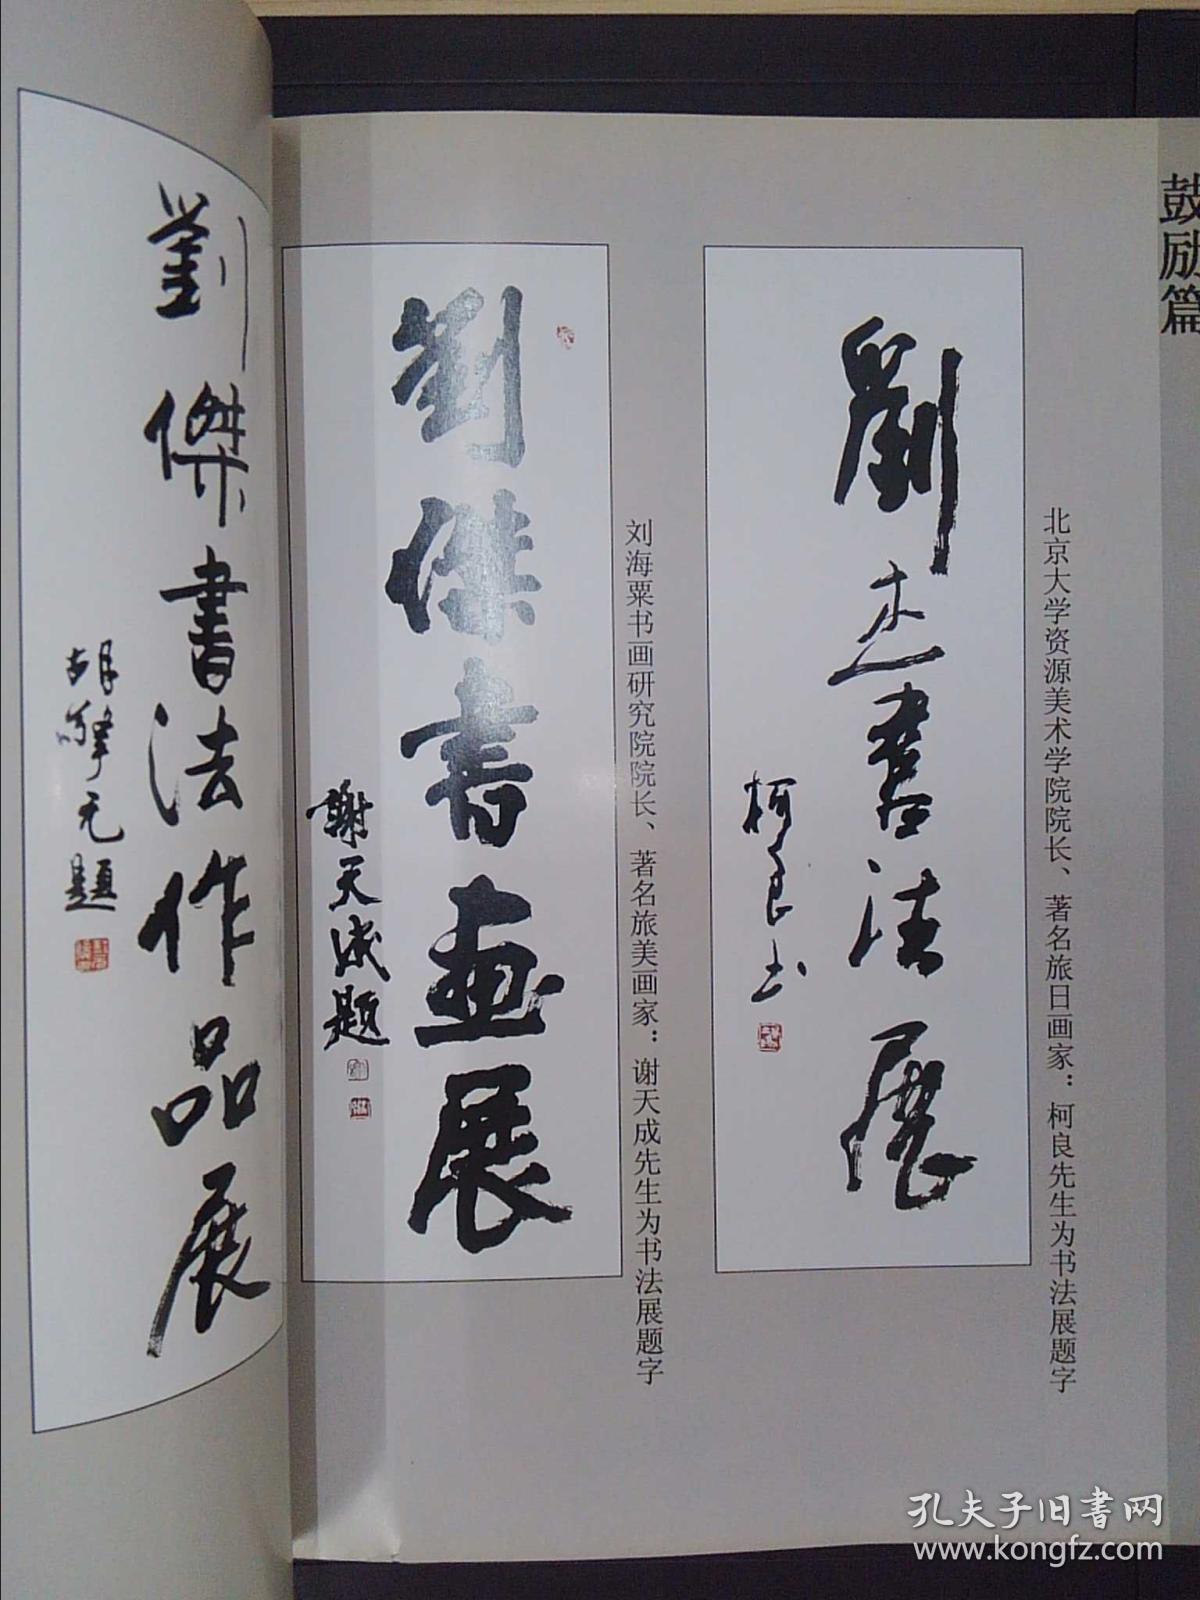 鼓励篇
劉杰書法展
柯良书
北京大学资源美术学院院长、著名旅日画家：柯良先生为书法展题字
劉傑書畫展
謝天成题
刘海粟书画研究院院长、著名旅美画家：谢天成先生为书法展题字
劉傑書法作品展
胡擎元題
孔夫子旧書网
www.kongfz.com